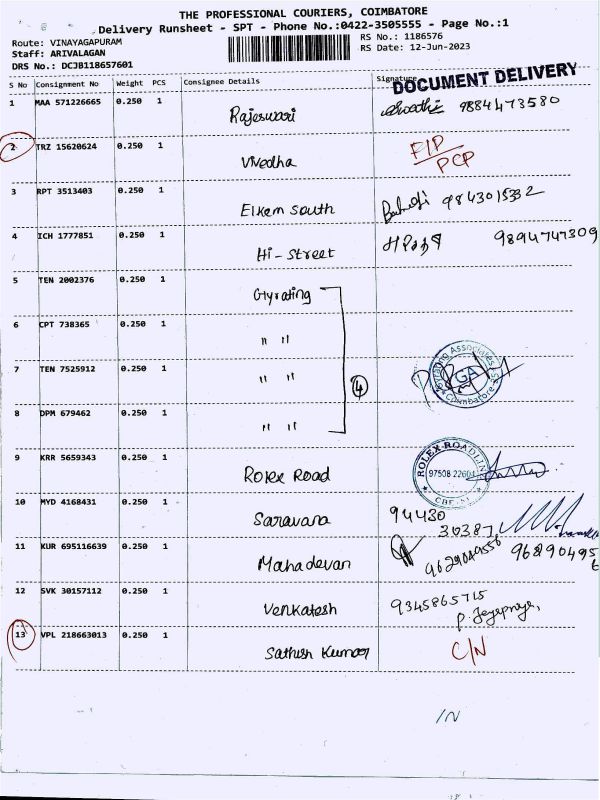 THE PROFESSIONAL COURIERS, COIMBATORE
Delivery Runsheet - SPT - Phone No.:0422-3505555 - Page No.:1
Route: VINAYAGAPURAM
Staff: ARIVALAGAN
DRS No.: DCJB118657601
RS No.: 1186576
RS Date: 12-Jun-2023
S No Consignment No Weight PCS Consignee Details Signature
DOCUMENT DELIVERY
1 MAA 571226665 0.250 1 Rajeswari 9884473580
2 TRZ 15620624 0.250 1 Vivedha F/P
PCP
3 RPT 3513403 0.250 1 Elkem South 9843015332
4 ICH 1777851 0.250 1 Hi-Street 9894747309
5 TEN 2002376 0.250 1 Gyrating
6 CPT 738365 0.250 1 " "
7 TEN 7525912 0.250 1 " " 4
Gyrating Associates
GA
Coimbatore
8 DPM 679462 0.250 1 " "
9 KRR 5659343 0.250 1 Rolex Road
ROLEX ROADLIN
97508 22604
10 MYD 4168431 0.250 1 Saravana 94430
30387
11 KUR 695116639 0.250 1 Mahadevan 9629049556 962904956
12 SVK 30157112 0.250 1 Venkatesh 9345865715
13 VPL 218663013 0.250 1 Sathish Kumar C/N
/N